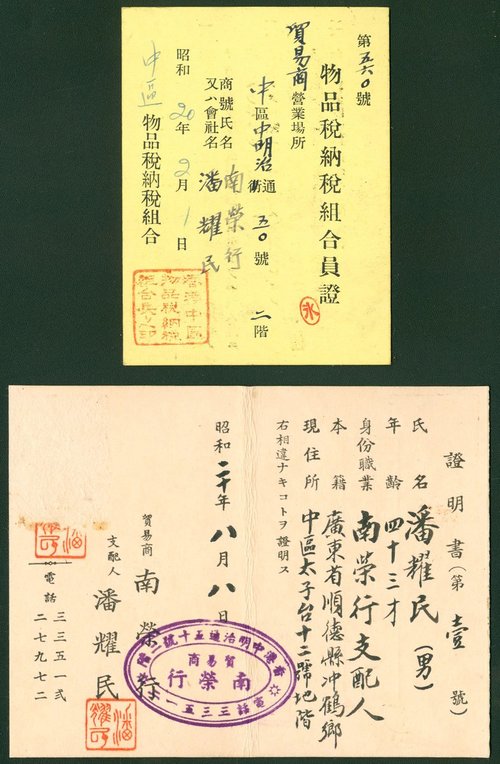 第五六〇號
物品稅納稅組合員證
貿易商營業場所
中區中明治通五〇號二階
街
商號氏名
又ハ會社名
南榮行
潘耀民
昭和20年2月1日
中區物品稅納稅組合
永
香港中區
物品稅納稅
組合長之印
證明書(第壹號)
氏名潘耀民(男)
年齡四十三才
身份職業南榮行支配人
本籍廣東省順德縣冲鶴鄉
現住所中區太子台十二號地階
右相違ナキコトヲ證明ス
昭和二十年八月八日
貿易商南榮行
支配人潘耀民
電話三三五一弍
二七九七二
香港中明治通五十號二階
貿易商
南榮行
電話三三五一二